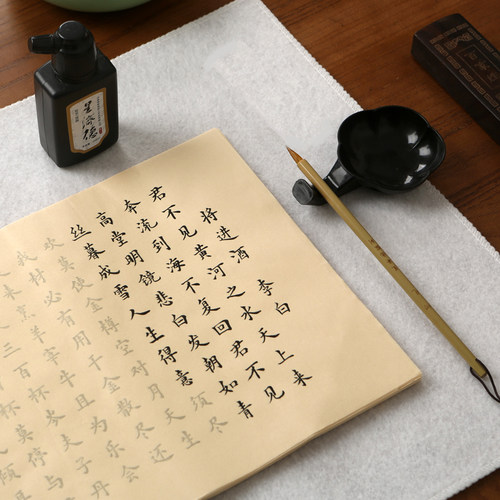 将进酒 李白
君不见黄河之水天上来
奔流到海不复回君不见
高堂明镜悲白发朝如青
丝暮成雪人生得意须尽
欢莫使金樽空对月天生
我材必有用千金散尽还
来烹羊宰牛且为乐会
三百杯岑夫子丹
杯莫停与
倾